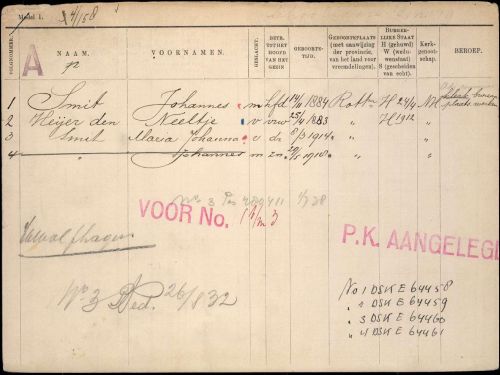 Model 1. 4/158
VOLGNOMMER.
NAAM.
VOORNAMEN.
GESLACHT.
BETR. TOT HET HOOFD VAN HET GEZIN
GEBOORTE-TIJD.
GEBOORTEPLAATS (met aanwijzing der provincie, van het land voor vreemdelingen).
BURGER-LIJKE STAAT H (gehuwd) W (weduwenstaat) S (gescheiden van echt).
Kerk-genoot-schap.
BEROEP.
A
1 Smit Johannes m hfd 14/11 1884 Rott. H 24/4 NH
2 Heijer den Neeltje v vrw 25/11 1883 " H 1912 "
3 Smit Maria Johanna v dr 8/3 1914 " "
4 " Johannes m zn 29/5 1918 " "
No 3 1/7 28
VOOR No. 1 t/m 3
P.K. AANGELEGD
No 3 Ded. 26/8 32
No 1 DSK E 64458
" 2 DSK E 64459
" 3 DSK E 64460
" 4 DSK E 64461